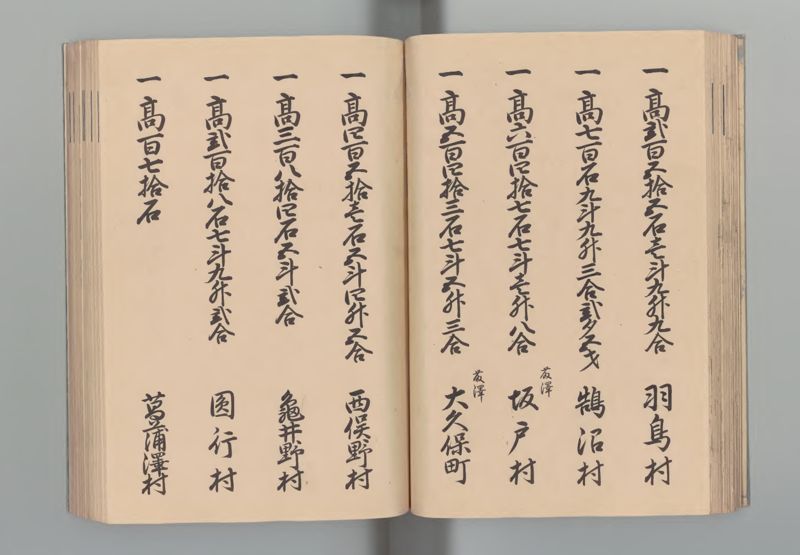 一 高弐百五拾五石壱斗九升九合 羽鳥村
一 高七百石九斗九升三合弐夕五才 鵠沼村
一 高六百四拾七石七斗壱升八合 藤澤 坂戸村
一 高五百四拾三石七斗五升三合 藤澤 大久保町
一 高四百五拾壱石五斗四升五合 西俣野村
一 高三百八拾四石五斗弐合 亀井野村
一 高弐百拾八石七斗九升弐合 圓行村
一 高百七拾石 菖蒲澤村